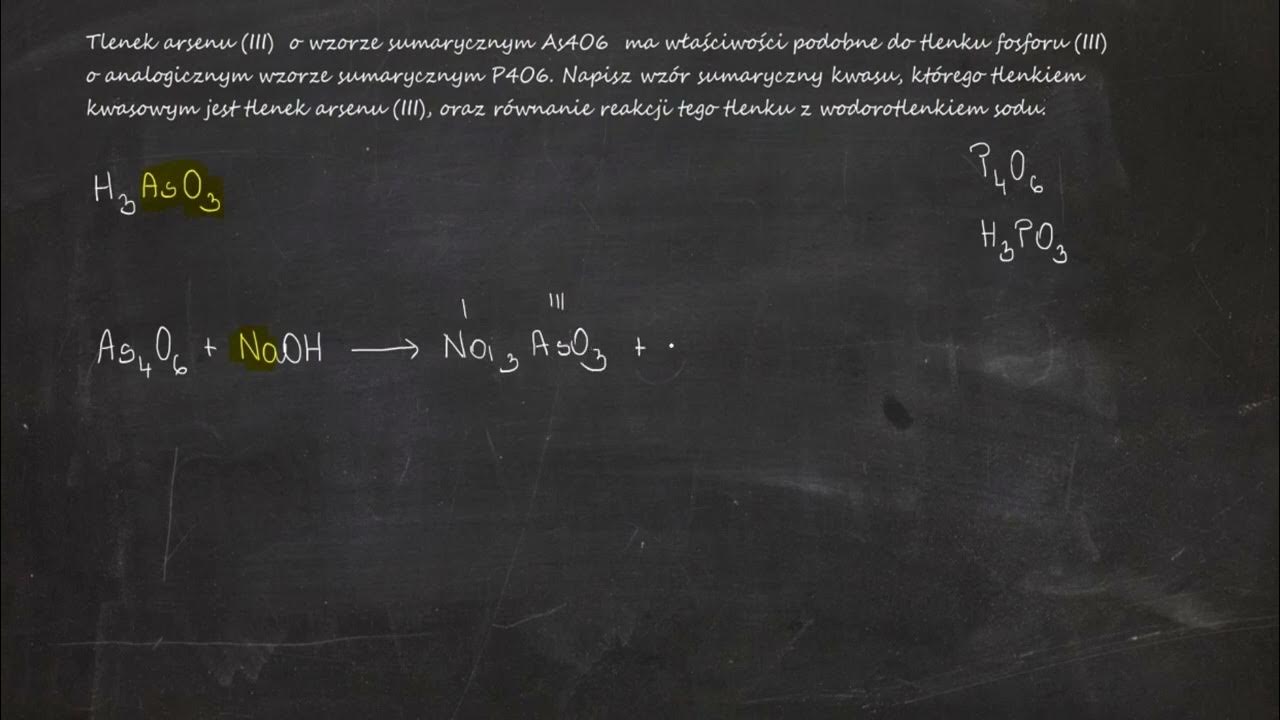 Tlenek arsenu (III) o wzorze sumarycznym As4O6 ma właściwości podobne do tlenku fosforu (III)
o analogicznym wzorze sumarycznym P4O6. Napisz wzór sumaryczny kwasu, którego tlenkiem
kwasowym jest tlenek arsenu (III), oraz równanie reakcji tego tlenku z wodorotlenkiem sodu.
P₄O₆
H₃AsO₃
H₃PO₃
I III
As₄O₆ + NaOH → Na₃AsO₃ + ·